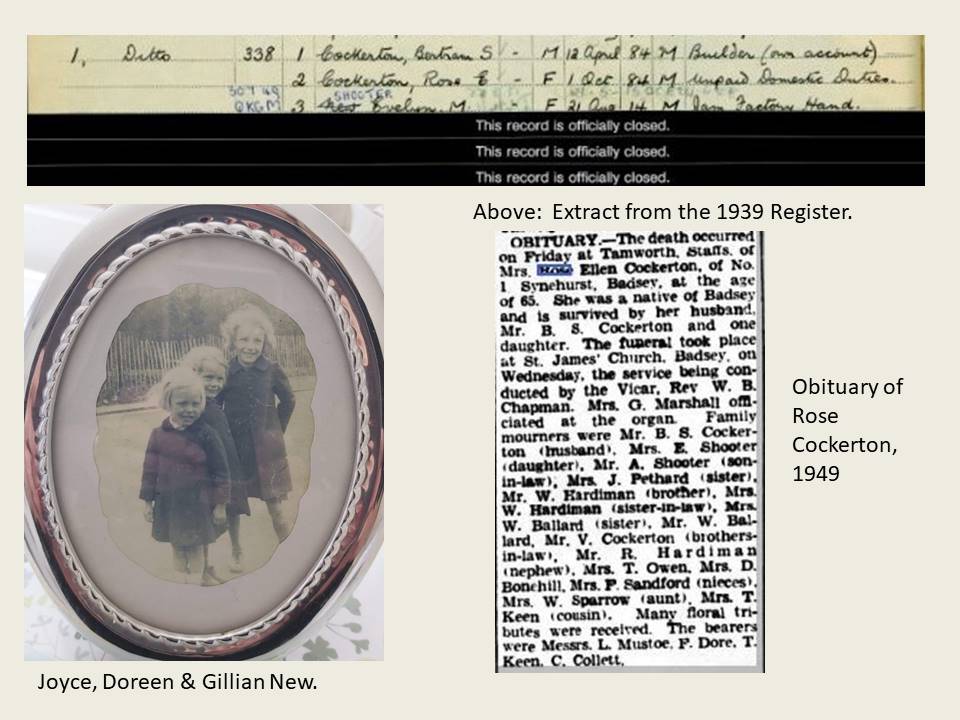 1, Ditto 338 1 Cockerton, Bertram S - M 12 April 84 M Builder (own account)
2 Cockerton, Rose E - F 1 Oct. 84 M Unpaid Domestic Duties.
SHOOTER
3 New Evelyn. M. - F 21 Aug 14 M Jam Factory Hand.
This record is officially closed.
This record is officially closed.
This record is officially closed.
Above: Extract from the 1939 Register.
OBITUARY.—The death occurred
on Friday at Tamworth, Staffs, of
Mrs. Rose Ellen Cockerton, of No.
1 Synehurst, Badsey, at the age
of 65. She was a native of Badsey
and is survived by her husband,
Mr. B. S. Cockerton and one
daughter. The funeral took place
at St. James' Church, Badsey, on
Wednesday, the service being con-
ducted by the Vicar, Rev W. B.
Chapman. Mrs. G. Marshall offi-
ciated at the organ. Family
mourners were Mr. B. S. Cocker-
ton (husband), Mrs. E. Shooter
(daughter), Mr. A. Shooter (son-
in-law), Mrs. J. Pethard (sister),
Mr. W. Hardiman (brother), Mrs.
W. Hardiman (sister-in-law), Mrs.
W. Ballard (sister), Mr. W. Bal-
lard, Mr. V. Cockerton (brothers-
in-law), Mr. R. Hardiman
(nephew), Mrs. T. Owen, Mrs. D.
Bonehill, Mrs. P. Sandford (nieces),
Mrs. W. Sparrow (aunt), Mrs. T.
Keen (cousin). Many floral tri-
butes were received. The bearers
were Messrs. L. Mustoe, F. Dore, T.
Keen, C. Collett.
Obituary of
Rose
Cockerton,
1949
Joyce, Doreen & Gillian New.